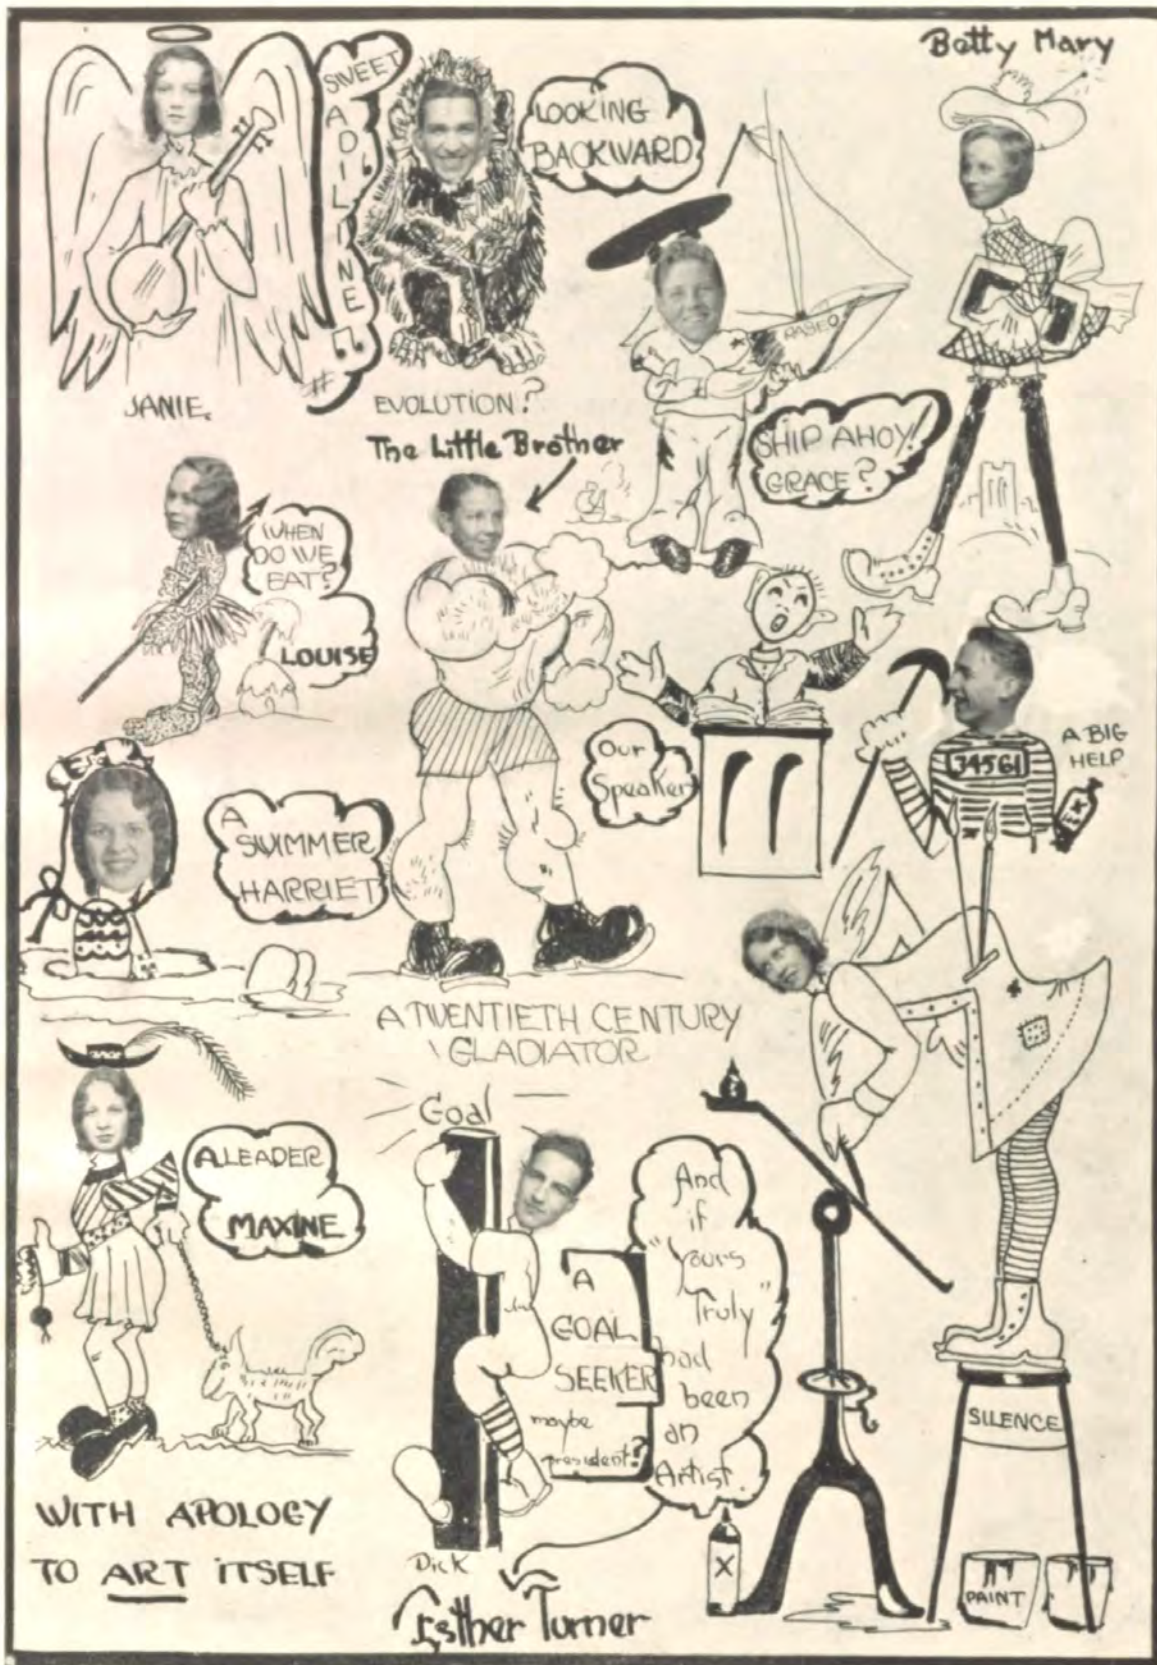 Betty Mary
SWEET
ADILINE
LOOKING
BACKWARD
JANIE.
EVOLUTION?
The Little Brother
SHIP AHOY!
GRACE?
WHEN
DO WE
EAT?
LOUISE
Our
Speaker
34561
A BIG
HELP
A
SWIMMER
HARRIET
A TWENTIETH CENTURY
GLADIATOR
A LEADER
MAXINE
Goal
A
GOAL
SEEKER
maybe
president?
And
if
"Yours
Truly"
had
been
an
Artist
SILENCE
PAINT
X
WITH APOLOGY
TO ART ITSELF
Dick
Esther Turner